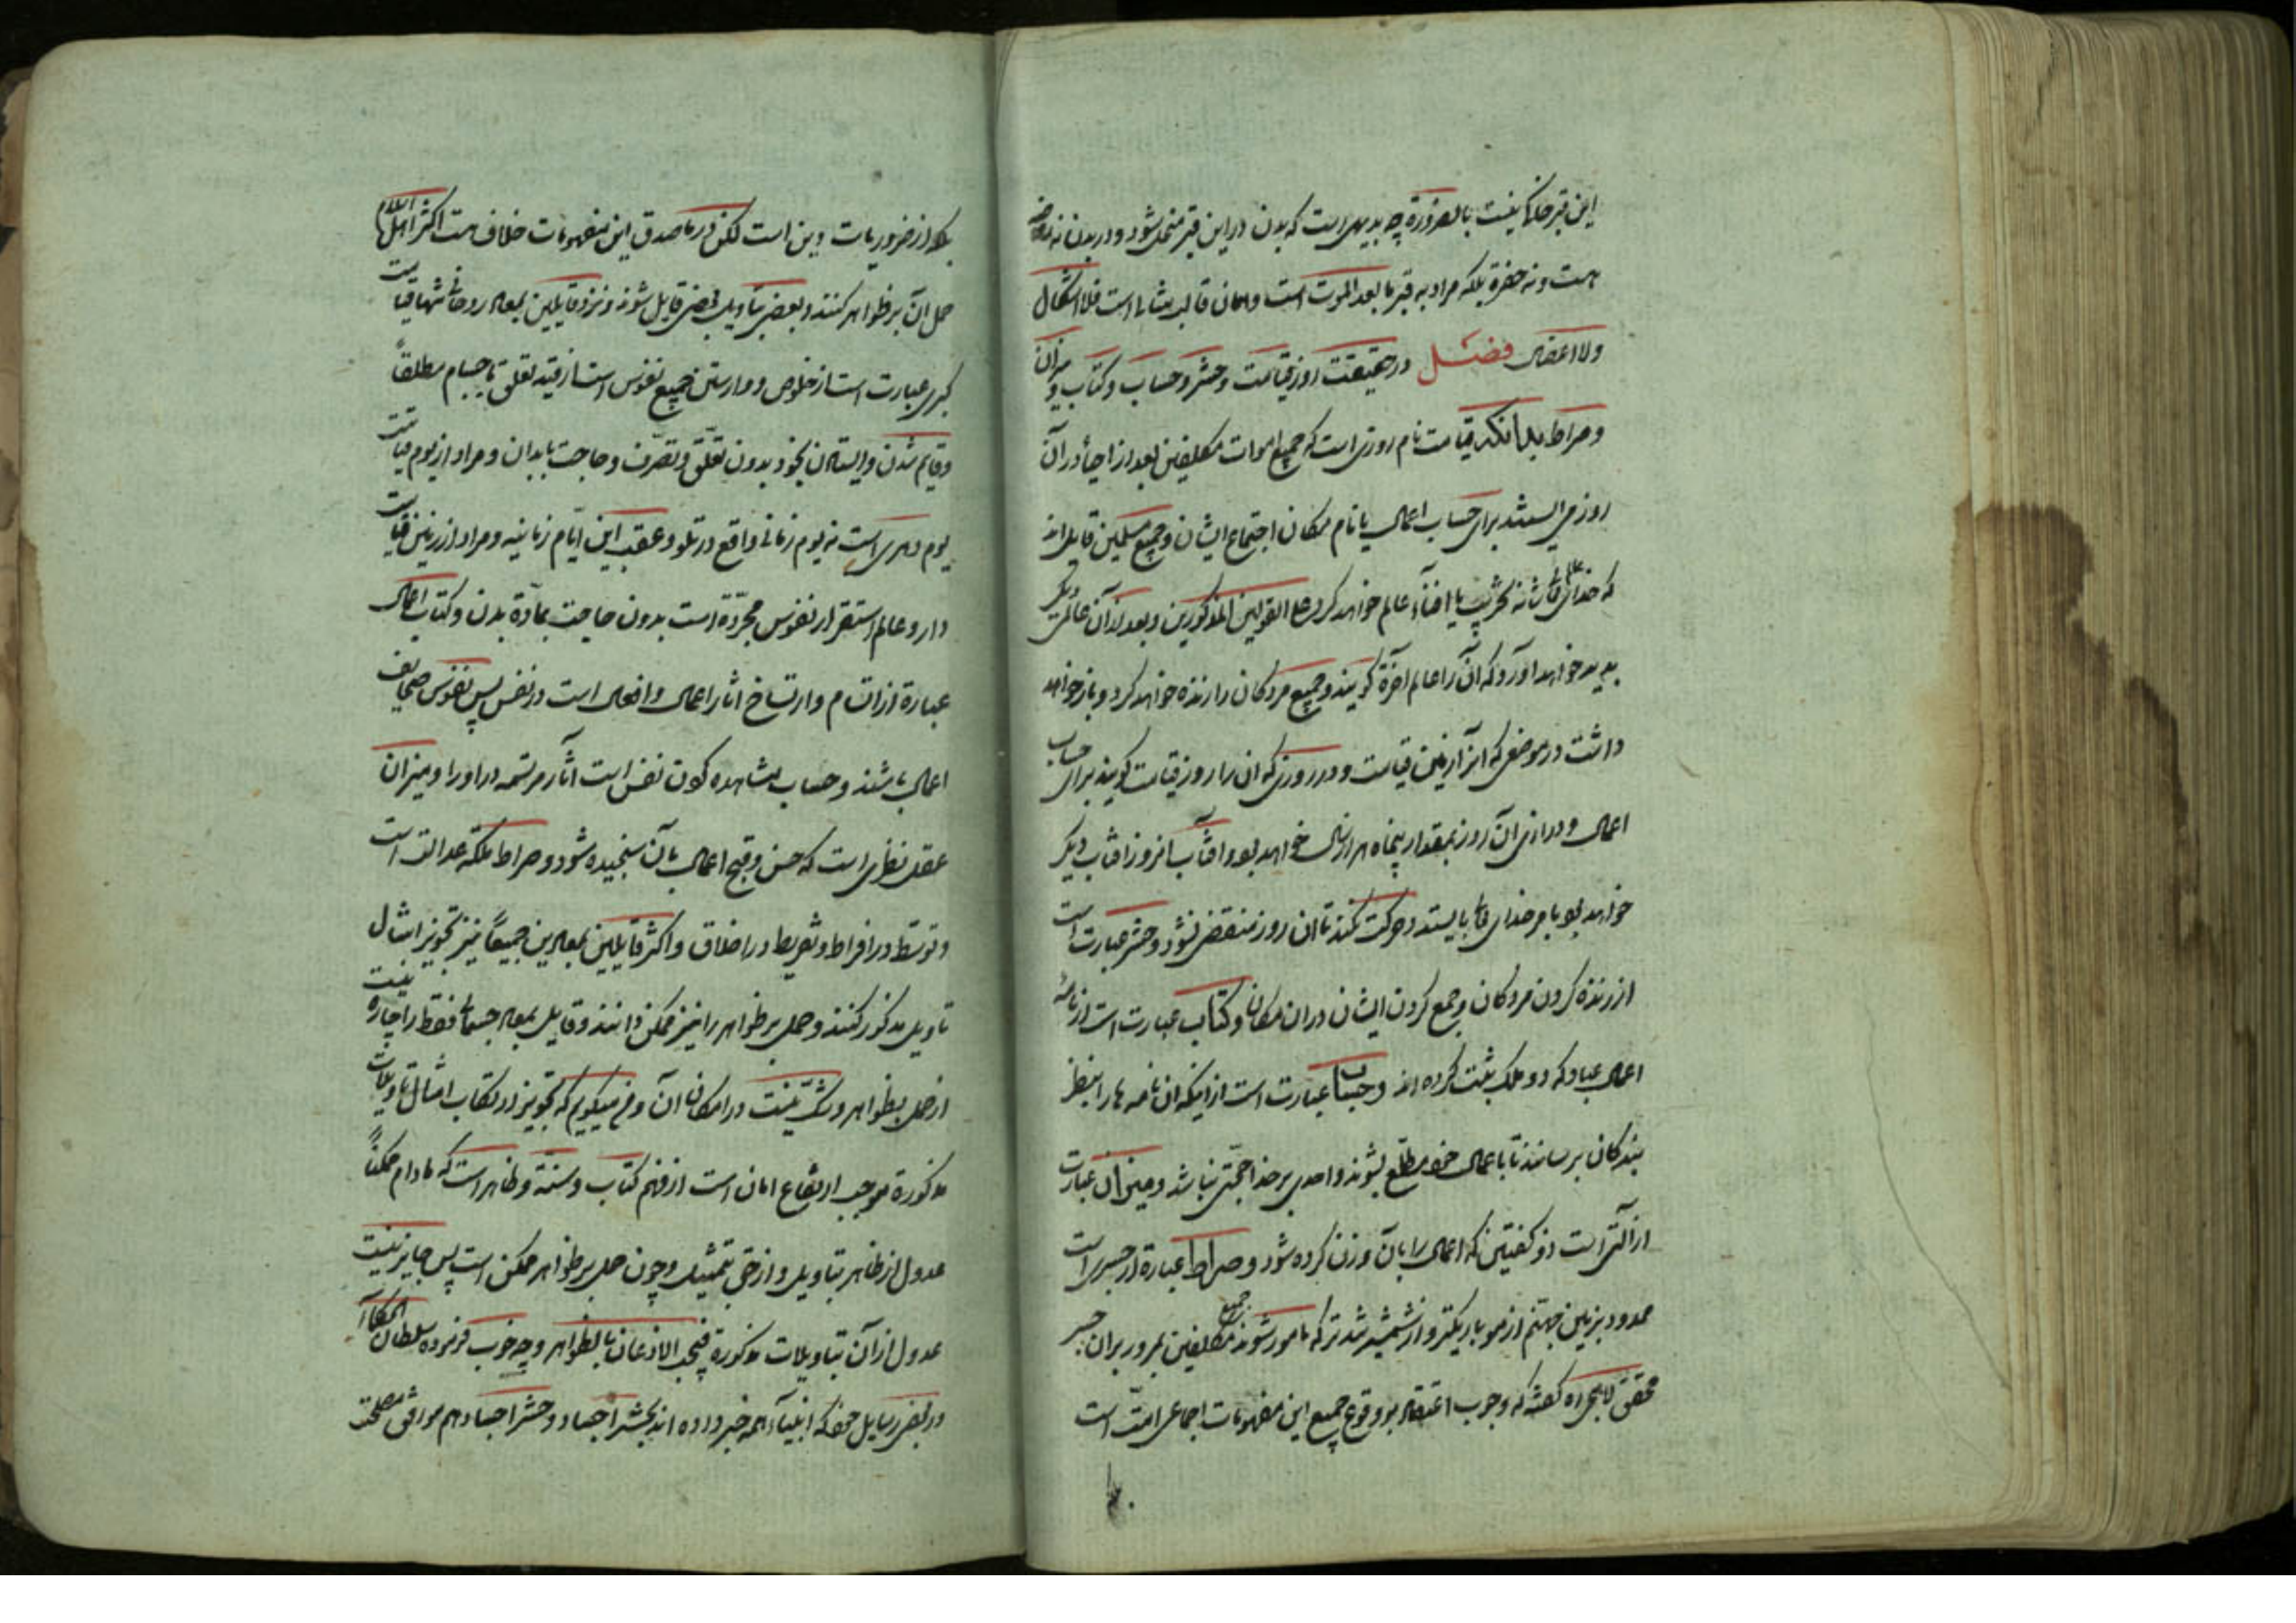 این قبر خاکی نیست بالضرورة چه بدیهی است که بدن در این قبر منحل شود و در بدن نه روضه
هست و نه حفرة بلکه مراد به قبر ما بعد الموت است و همان قالب مثالی است فلا اشکال
ولا اعضال فصل در حقیقت روز قیامت و حشر و حساب و کتاب و میزان
و صراط بدانکه قیامت نام روزی است که جمیع اموات مکلفین بعد از احیا در آن
روز می ایستند برای حساب اعمال یا نام مکان اجتماع ایشان و جمیع مسلمین قایل اند
که خدای تعالی شانه تخریب یا افناء عالم خواهد کرد علی القولین المذکورین و بعد از آن عالمی دیگر
پدید خواهد آورد که آن را عالم آخرة گویند و جمیع مردکان را زنده خواهد کرد و باز خواهد
داشت در موضعی که آنرا زمین قیامت و در روزی که ان را روز قیامت گویند برای حساب
اعمال و درازی آن روز بمقدار پنجاه هزار سال خواهد بود و آفتاب انروز افتاب دیگر
خواهد بود بامر خدای تعالی بایستد و حرکت نکند تا ان روز منقضی نشود و حشر عبارت است
از زنده کردن مردکان و جمع کردن ایشان در ان مکان و کتاب عبارت است از نامهٔ
اعمال عباد که دو ملک ثبت کرده اند و حساب عبارت است از اینکه ان نامه ها را بنظر
بندکان برسانند تا باعمال خود مطلع بشوند و احدی بر خدا حجتی نباشد و میزان عبارت
از آلتی است ذو کفتین که اعمال را بآن وزن کرده شود و صراط عبارة از جسری است
ممدود بر زمین جهنم از مو باریکتر و از شمشیر تر که مامور شوند جمیع مکلفین بمرور بران جسر
محقق لاهجی ره گفته که وجوب اعتقاد بوقوع جمیع این مفهومات اجماعی امت است
بلکه از ضروریات دین است لکن در ما صدق این مفهومات خلاف هست اکثر اهل اسلام
حمل آن بر ظواهر کنند و بعضی بتاویل بعضی قایل شوند و نزد قایلین بمعاد روحانی تنها قیامت
کبری عبارت است از خلوص و وارستن جمیع نفوس است از قید تعلق باجسام مطلقاً
و قایم شدن و ایستادن بخود بدون تعلّق و تصرّف و حاجت بابدان و مراد از یوم قیامت
یوم دهری است نه یوم زمانی واقع در تلو و عقب این ایّام زمانیه و مراد از زمین قیامت
دار و عالم استقرار نفوس مجرّدة است بدون حاجت بمادّة بدن و کتاب اعمال
عبارة از ارتسام و ارتساخ اثار اعمال و افعال است در نفس پس نفوس صحایف
اعمال باشند و حساب مشاهده کردن نفس است آثار مرتسمه در او را و میزان
عقل نظری است که حسن و قبح اعمال بآن سنجیده شود و صراط ملکه عدالت است
و توسّط در افراط و تفریط در اخلاق و اکثر قایلین بمعادین جمیعاً نیز تجویز امثال
تاویل مذکور کنند و حمل بر ظواهر را نیز ممکن دانند و قایل بمعاد جسمانی فقط را چاره نیست
از حمل بظواهر و شک نیست در امکان ان و می میگویم که تجویز ارتکاب امثال تاویلات
مذکورة موجب ارتفاع امان است از فهم کتاب و سنّة و ظاهر است که مادام ممکناً
عدول از ظاهر بتاویل و از حق بتمثیل و چون حمل بر ظواهر ممکن است پس جایز نیست
عدول از آن بتاویلات مذکورة فیجب الاذعان بالظواهر و چه خوب فرموده سلطان الحکماء
در بعض رسایل خود که انبیاء همه خبر داده اند بحشر اجساد و حشر اجساد هم موافق مصلحت